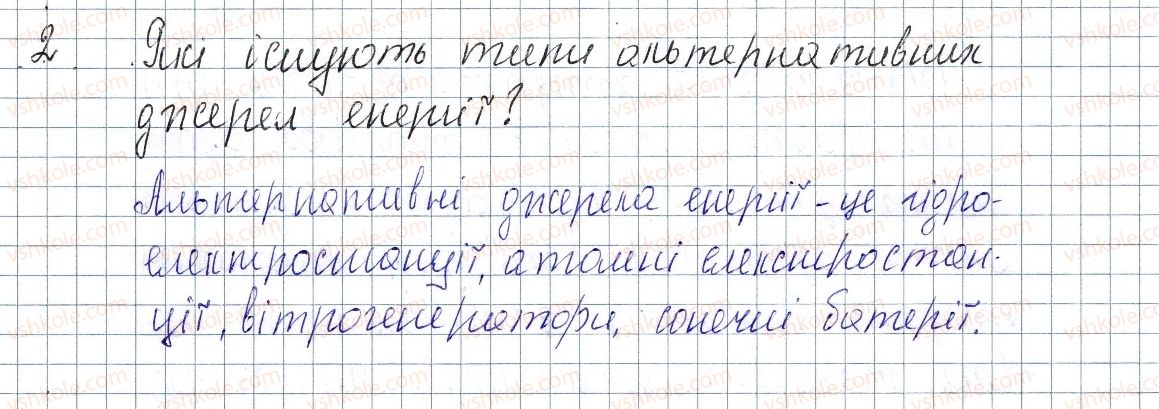 2. Які існують типи альтернативних
джерел енергії?
Альтернативні джерела енергії - це гідро-
електростанції, атомні електростан-
ції, вітрогенератори, сонечні батерії.